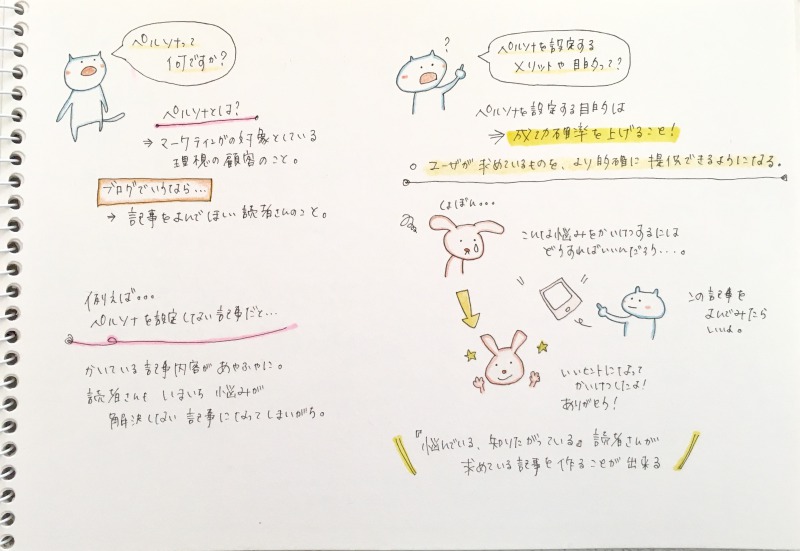 ペルソナって
何ですか?
ペルソナとは?
⇒ マーケティングの対象としている
理想の顧客のこと。
ブログでいうなら...
→ 記事をよんでほしい読者さんのこと。
例えば。。。
ペルソナを設定しない記事だと...
かいている記事内容があやふやに。
読者さんも いまいち 悩みが
解決しない 記事になってしまいがち。
?
ペルソナを設定する
メリットや目的って?
ペルソナを設定する目的は
⇒ 成功確率を上げること!
○ ユーザが求めているものを、より的確に 提供できるようになる。
しょぼん。。。
こんな悩みをかいけつするには
どうすればいいんだろう・・・。
この記事を
よんでみたら
いいよ。
いいヒントになって
かいけつしたよ!
ありがとう!
『悩んでいる、知りたがっている』読者さんが
求めている記事を作ることが出来る